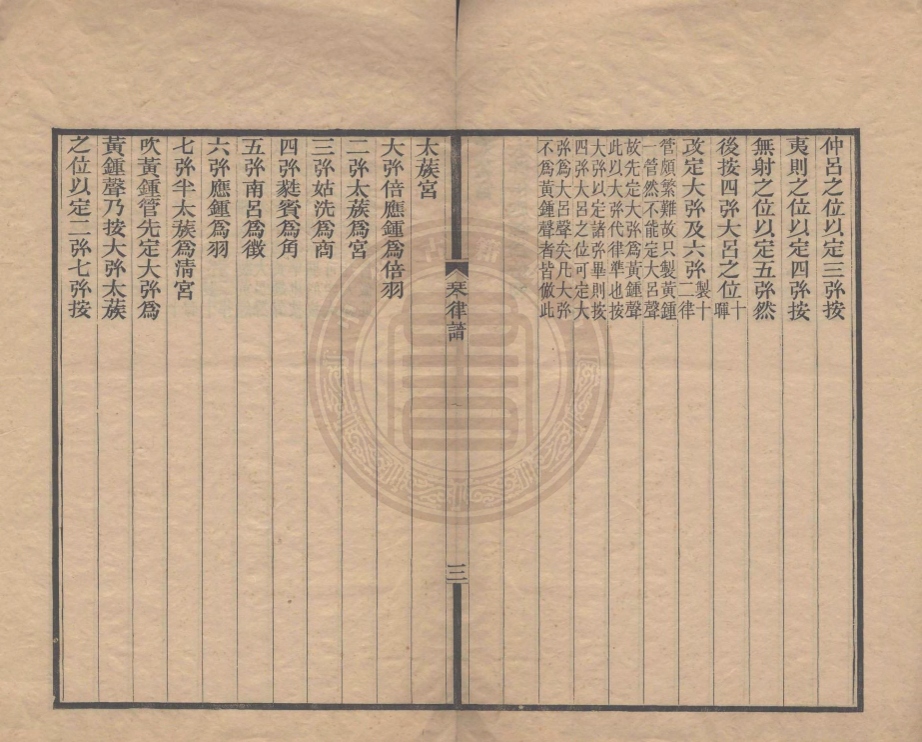 仲呂之位以定三弦按
夷則之位以定四弦按
無射之位以定五弦然
後按四弦大呂之位十暉
改定大弦及六弦製十二律
管頗繁難故只製黃鍾
一管然不能定大呂聲
故先定大弦為黃鍾聲
此以大弦代律準也按
大弦以定諸弦畢則按
四弦大呂之位可定大
弦為大呂聲矣凡大弦
不為黃鍾聲者皆倣此
琴律譜
三
太蔟宮
大弦倍應鍾為倍羽
二弦太蔟為宮
三弦姑洗為商
四弦蕤賓為角
五弦南呂為徵
六弦應鍾為羽
七弦半太蔟為清宮
吹黃鍾管先定大弦為
黃鍾聲乃按大弦太蔟
之位以定二弦七弦按